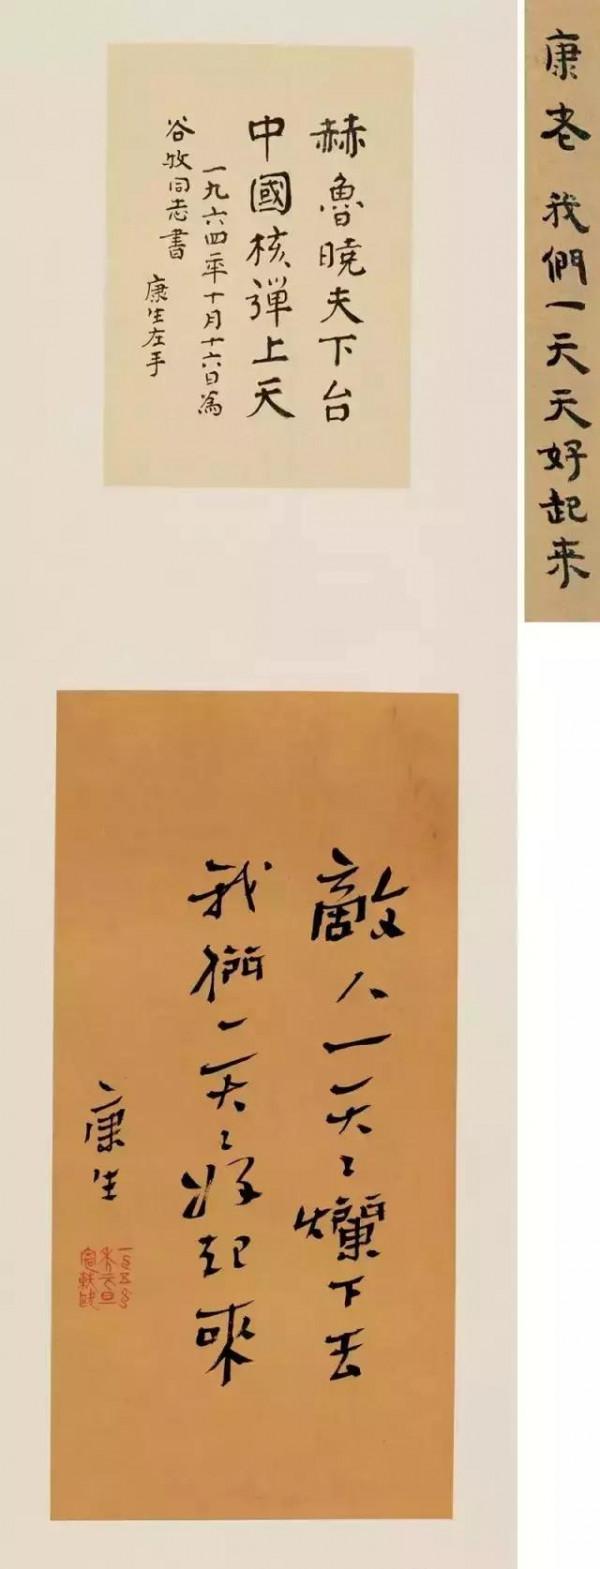 赫魯曉夫下台
中國核彈上天
一九六四年十月十六日為
谷牧同志書
康生左手
康老 我們一天天好起来
敵人一天々爛下去
我們一天々好起來
康生